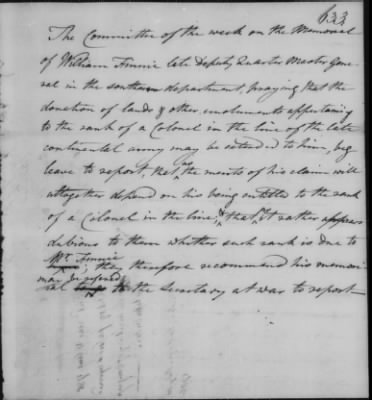 633
The Committee of the week on the Memorial
of William Finnie late Deputy Quarter Master Gene
ral in the southern department, praying that the
donation of lands & other emoluments appertaining
to the rank of a Colonel in the line of the late
continental army may be extended to him, beg
leave to report, that as the merits of his claim will
altogether depend on his being entitled to the rank
of a Colonel in the line, & that it rather appears
dubious to them whether such rank is due to
Mr. Finnie, they therefore recommend his memori
al may be referred to the Secretary at war to report